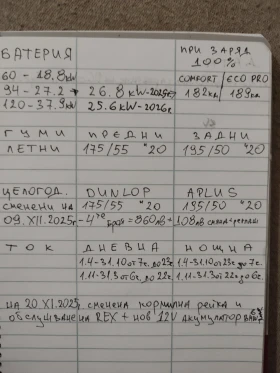 БАТЕРИЯ ПРИ ЗАРЯД 100%
60 - 18.8 kW COMFORT / ECO PRO
94 - 27.2 → 26.8 kW-2025г. 182км 189км
120 - 37.9 kW 25.6 kW-2026г.
ГУМИ ПРЕДНИ ЗАДНИ
ЛЕТНИ 175/55 "20 195/50 "20
ЦЕЛОГОД. DUNLOP APLUS
сменени на 175/55 "20 195/50 "20
09.XII.2025г. - 4те броя = 860лв + 108лв
ТОК ДНЕВНА НОЩНА
1.4-31.10 от 7г. до 23г. 1.4-31.10 от 23г. до 7г.
1.11-31.3 от 6г. до 22г. 1.11-31.3 от 22г. до 6г.
на 20.XI.2025г. сменена кормилна рейка и
обслужване на REX + нов 12V акумулатор